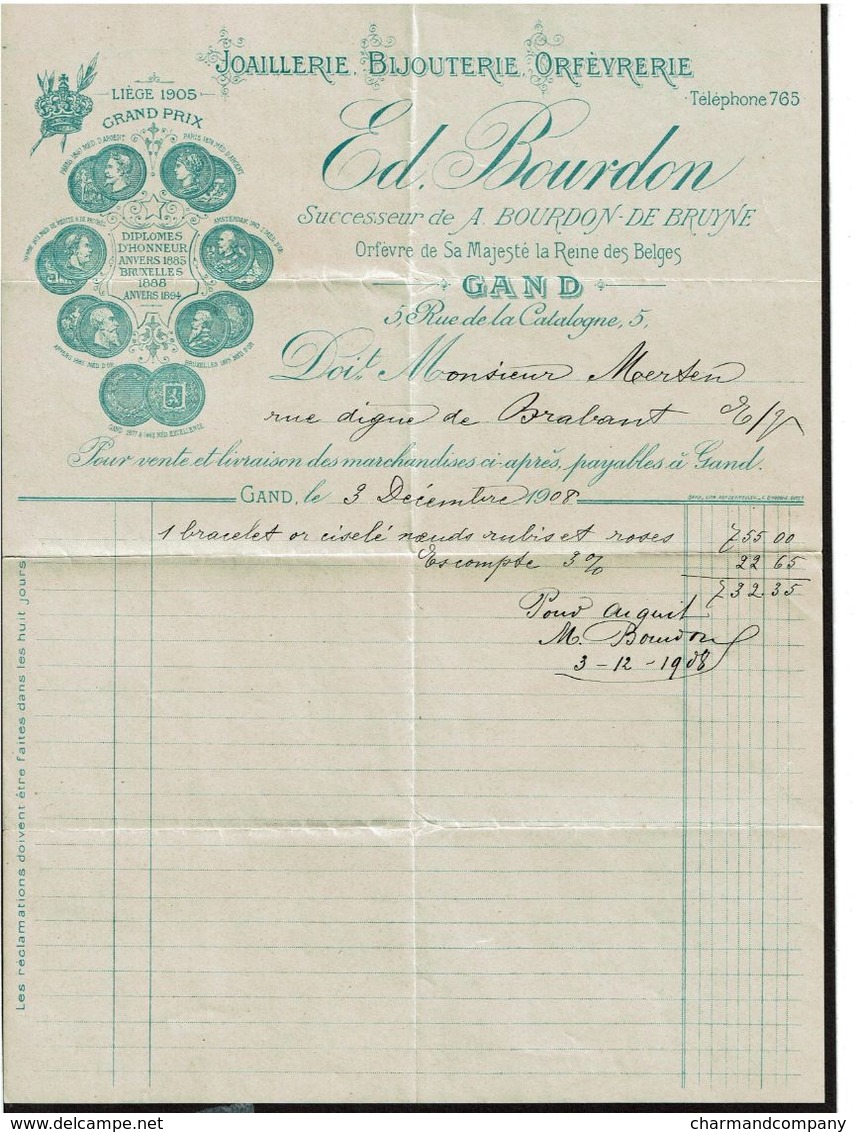 JOAILLERIE, BIJOUTERIE, ORFÈVRERIE
Téléphone 765
LIÈGE 1905
GRAND PRIX
Ed. Bourdon
Successeur de A. BOURDON-DE BRUYNE
Orfèvre de Sa Majesté la Reine des Belges
GAND
5, Rue de la Catalogne, 5,
DIPLOMES
D'HONNEUR
ANVERS 1885
BRUXELLES
1888
ANVERS 1894
Doit Monsieur Mersen
rue digue de Brabant E/V
Pour vente et livraison des marchandises ci-après, payables à Gand.
GAND, le 3 Décembre 1908
1 bracelet or ciselé nœuds rubis et roses 755 00
Escompte 3 % 22 65
732.35
Pour Acquit
M. Bourdon
3-12-1908
Les réclamations doivent être faites dans les huit jours.
delcampe.net
charmandcompany